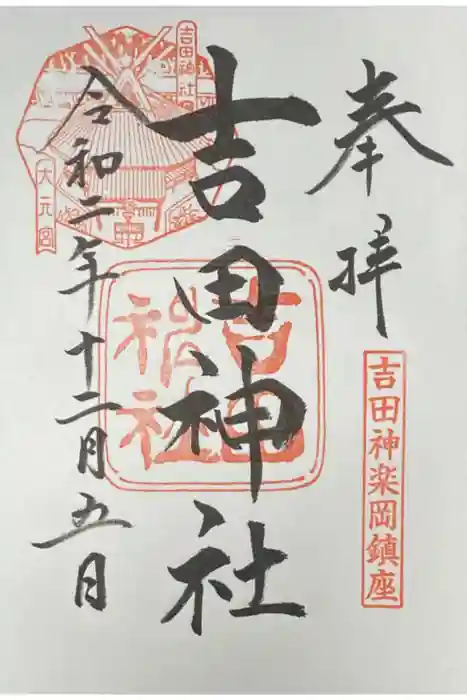 奉拝
吉田神楽岡鎮座
吉田神社
吉田神社
令和二年十二月五日
吉田神社
大元宮